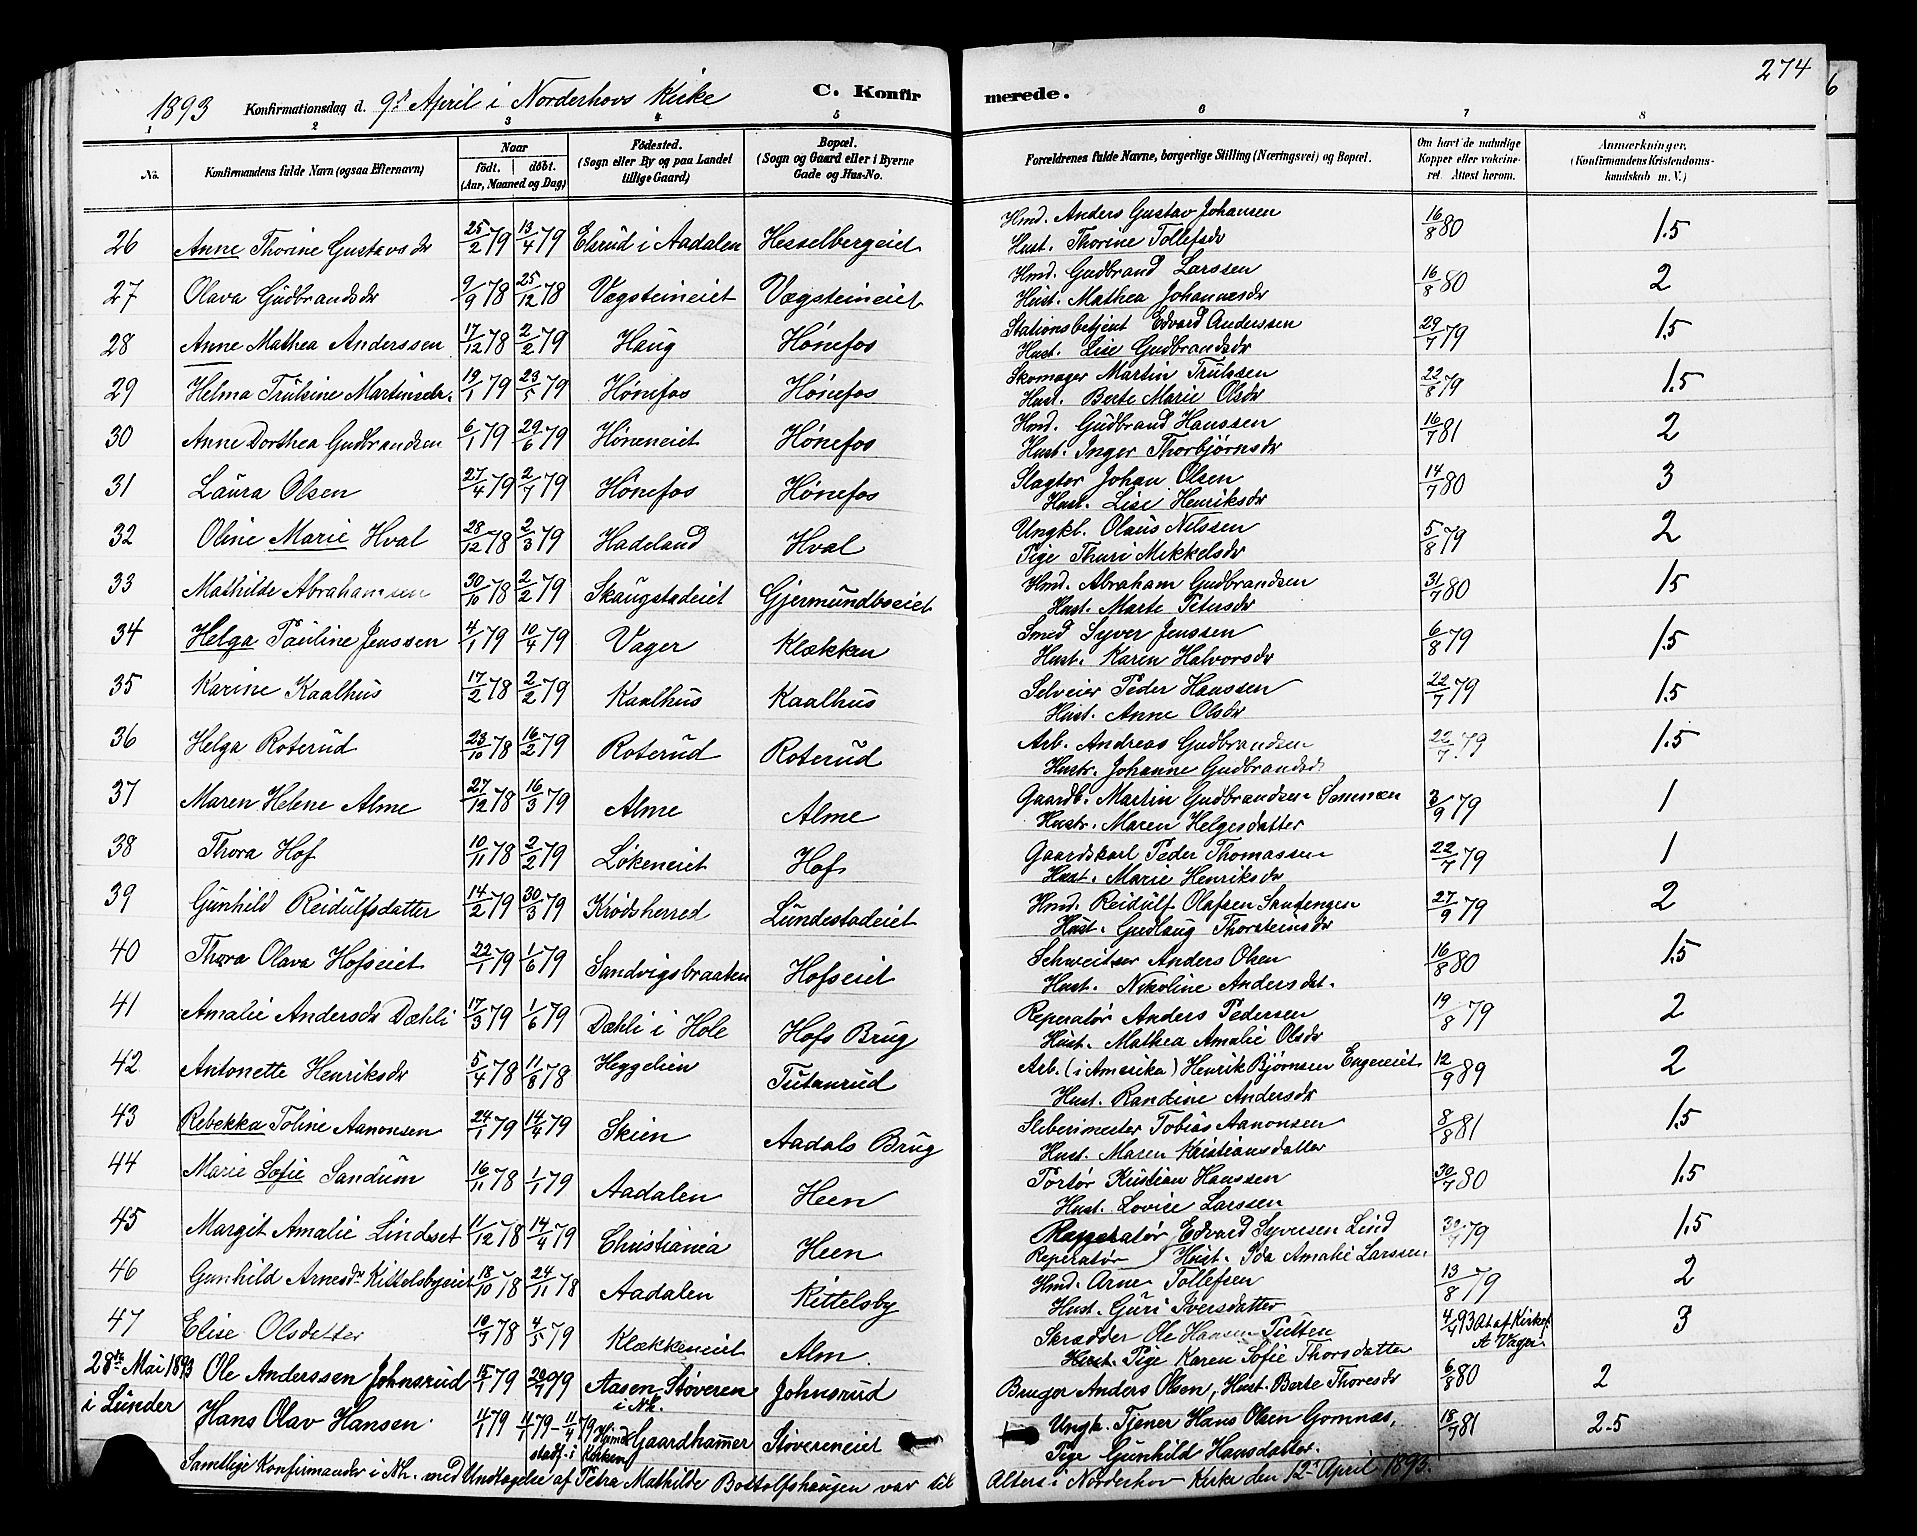 274
1893 Konfirmationsdag d. 9de April i Norderhovs Kirke C. Konfirmerede.
1 2 3 4 5 6 7 8
No. Konfirmandens fulde Navn (ogsaa Efternavn) Naar født. døbt. (Aar, Maaned og Dag) Fødested. (Sogn eller By og paa Landet tillige Gaard) Bopæl. (Sogn og Gaard eller i Byerne Gade og Hus-No. Forældrenes fulde Navne, borgerlige Stilling (Næringsvei) og Bopæl. Om havt de naturlige Kopper eller vakcineret. Attest herom. Anmærkninger. (Konfirmandens Kristendomskundskab m. V.)
26 Anne Thorine Gustavsdr 25/2 79 13/4 79 Elsrud i Aadalen Hesselbergeiet Hmd. Anders Gustav Johansen 16/8 80 1.5
Hust. Thorine Tollefsdr
27 Olava Gudbrandsdr 9/9 78 25/12 78 Vægsteineiet Vægsteineiet Hmd. Gudbrand Larssen 16/8 80 2
Hust. Mathea Johannesdr
28 Anne Mathea Anderssen 17/12 78 2/2 79 Haug Hønefos Stationsbetjent Edvard Anderssen 29/7 79 1.5
Hust. Lise Gudbrandsdr
29 Helma Trulsine Martinsdr. 19/1 79 23/5 79 Hønefos Hønefos Skomager Martin Trulssen 22/8 79 1.5
Hust. Berte Marie Olsdr
30 Anne Dorthea Gudbrandsen 6/1 79 29/6 79 Høneneiet Hønefos Hmd. Gudbrand Hanssen 16/7 81 2
Hust. Inger Thorbjørnsdr
31 Laura Olsen 27/4 79 2/7 79 Hønefos Hønefos Slagter Johan Olsen 14/7 80 3
Hust. Lise Henriksdr
32 Oline Marie Hval 28/12 78 2/3 79 Hadeland Hval Ungkl. Olaus Nilssen 5/8 79 2
Pige Thuri Mikkelsdr
33 Mathilde Abrahamsen 30/10 78 2/2 79 Skaugstadeiet Gjermundboeiet Hmd. Abraham Gudbrandsen 31/7 80 1.5
Hust. Marte Petersdr
34 Helga Pauline Jenssen 4/1 79 10/4 79 Vager Klækken Smed Syver Jenssen 6/8 79 1.5
Hust. Karen Halvorsdr
35 Karine Kaalhus 17/2 78 2/2 79 Kaalhus Kaalhus Selveier Peder Hanssen 22/7 79 1.5
Hust. Anne Olsdr
36 Helga Roterud 23/10 78 16/2 79 Roterud Roterud Arb. Andreas Gudbrandsen 22/7 79 1.5
Hustr. Johanne Gudbrandsd.
37 Maren Helene Alme 27/12 78 16/3 79 Alme Alme Gaardb. Martin Gudbrandsen 3/9 79 1
Hustr. Maren Helgesdatter
38 Thora Hof 10/11 78 2/2 79 Løkeneiet Hof Gaardskarl Peder Thomassen 22/7 79 1
Hust. Marie Henriksdr
39 Gunhild Reidulfsdatter 14/2 79 30/3 79 Krødsherred Lundestadeiet Hmd. Reidulf Olafsen Santengen 27/9 79 2
Hust. Gudlaug Thorsteinsdr
40 Thora Olava Hofseiet 22/1 79 1/6 79 Sandvigsbraaten Hofseiet Schweitser Anders Olsen 16/8 80 1.5
Hust. Nikoline Andersdet.
41 Amalie Andersdr Dæhli 17/3 79 1/6 79 Dæhli i Hole Hofs Brug Reperatør Anders Pedersen 19/8 79 2
Hust. Mathea Amalie Olsdr
42 Antonette Henriksdr 5/4 78 11/8 78 Heggelien Tutanrud Arb. (i Amerika) Henrik Bjørnsen Engeneiet 12/9 89 2
Hust. Randine Andersdr
43 Rebekka Toline Aanonsen 24/1 79 14/4 79 Skien Aadals Brug Sliberimester Tobias Aanonsen 8/8 81 1.5
Hust. Maren Kristiansdatter
44 Marie Sofie Sandum 16/11 78 1/1 79 Aadalen Heen Portør Kristian Hanssen 30/7 80 1.5
Hust. Lovise Larssen
45 Margit Amalie Lindset 11/12 78 14/4 79 Christiania Heen Reperatør Edvard Syversen Lind 79 1.5
Reperatør Hust. Ida Amalie Larssen
46 Gunhild Arnesdr Kittelsbyeiet 18/10 78 24/11 78 Aadalen Kittelsby Hmd. Arne Tollefsen 13/8 79 2
Hust. Guri Iversdatter
47 Elise Olsdatter 10/7 78 4/5 79 Klækkeneiet Alm. Skrædder Ole Hansen Tulten 4/4 93 At. af Kirkes. A Vager 3
Hust. Pige Karen Sofie Thorsdatter
28de Mai 1893 Ole Anderssen Johnsrud 15/1 79 20/4 79 Aasen Støveren i Nh. Johnsrud Bruger Anders Olsen, Hust. Berte Thoresdr 6/8 80 2
i Lunder Hans Olav Hansen 4/1 79 4/1 79 - 11/4 79 Hjmd. stadf. i Kirken Gaardhammer Støvereneiet Ungk. Tjener Hans Olsen Gomnæs, 18/7 81 2.5
Pige Gunhild Hansdatter.
Samtlige Konfirmander i Nh. med Undtagelse af Petra Mathilde Bottolfshaugen var til Alters i Norderhov Kirke den 12. April 1893.